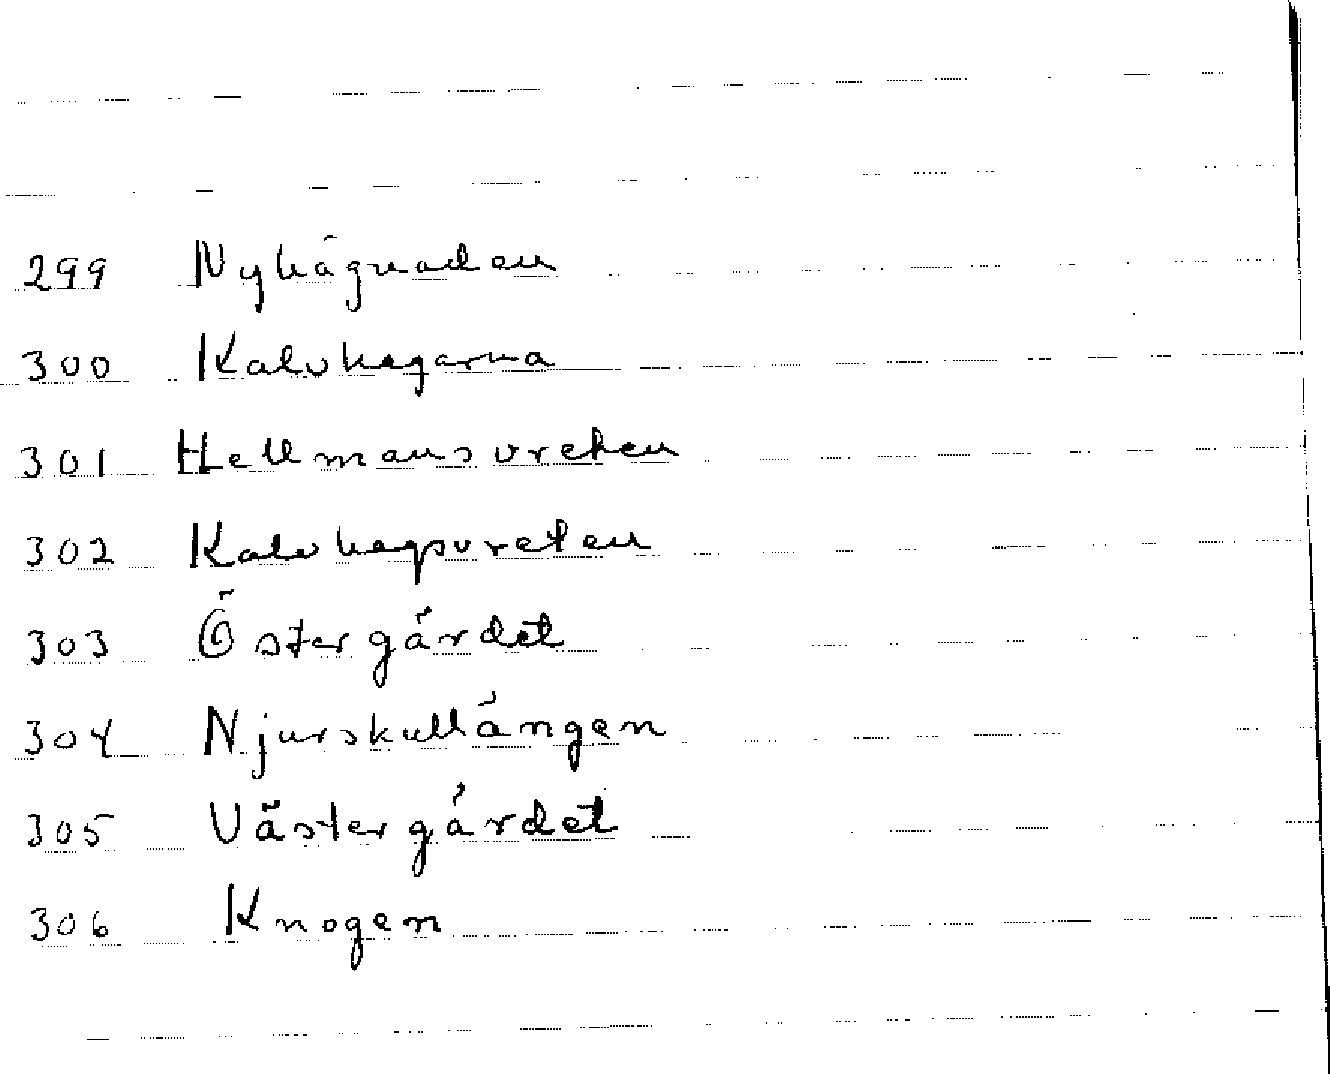 299 Nyhägnaden
300 Kalvhagarna
301 Hellmansvreten
302 Kalvhagsvreten
303 Östergärdet
304 Njurskullängen
305 Västergärdet
306 Knogen